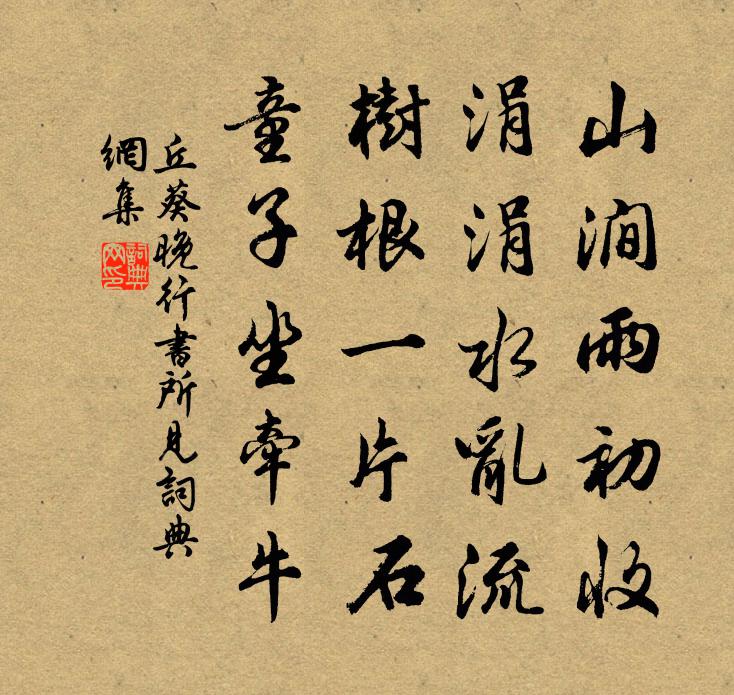 山澗雨初收
涓涓水亂流
樹根一片石
童子坐牽牛
丘葵晚行書所見詞典
網集
詞典
网印